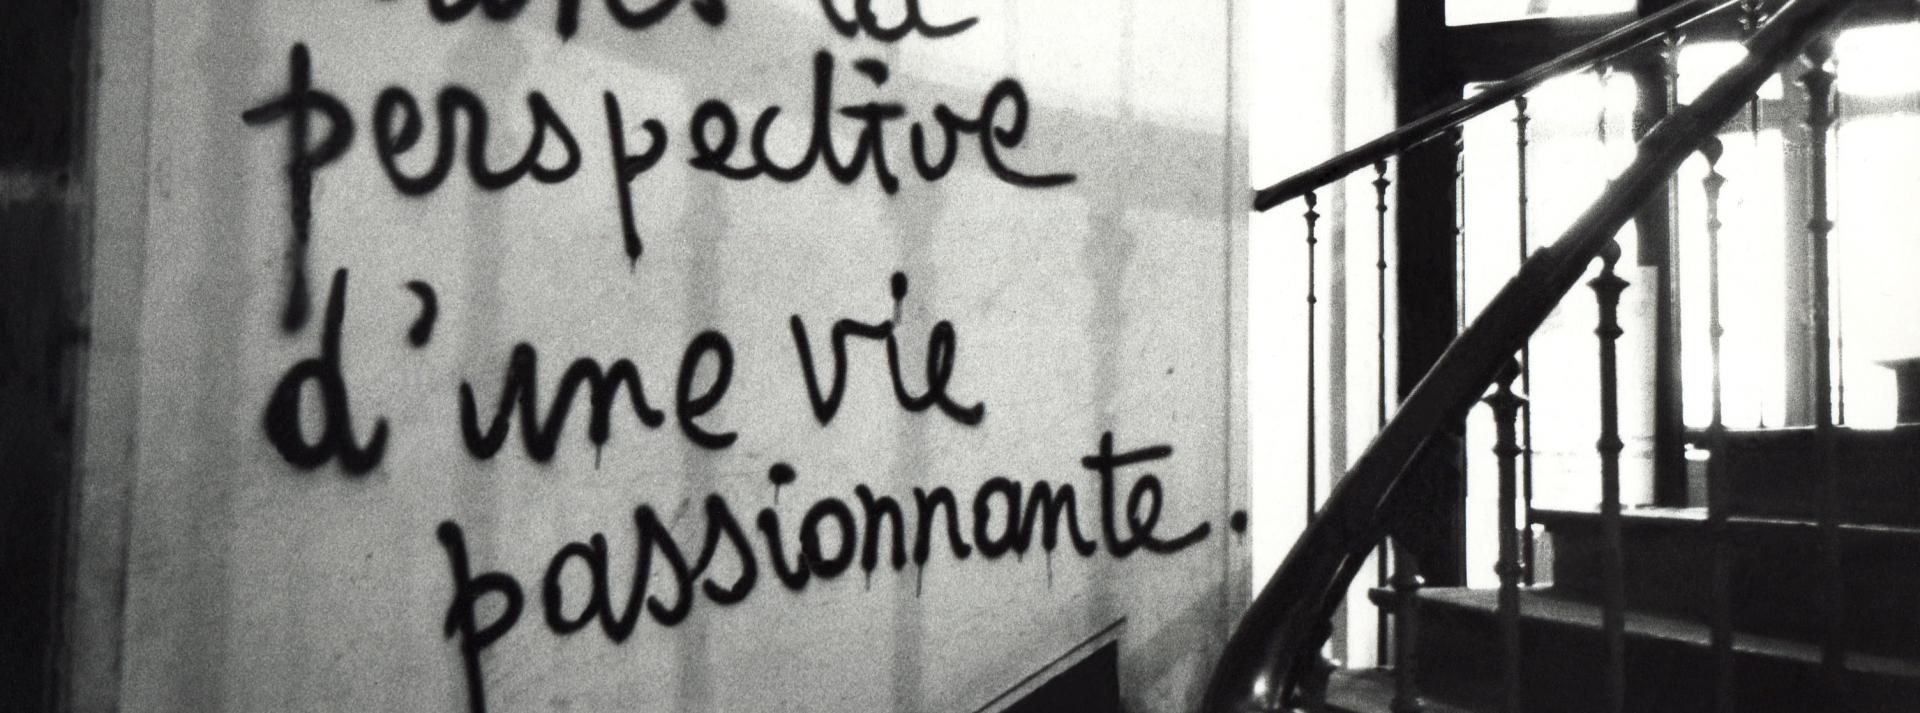 dans la
perspective
d'une vie
passionnante.